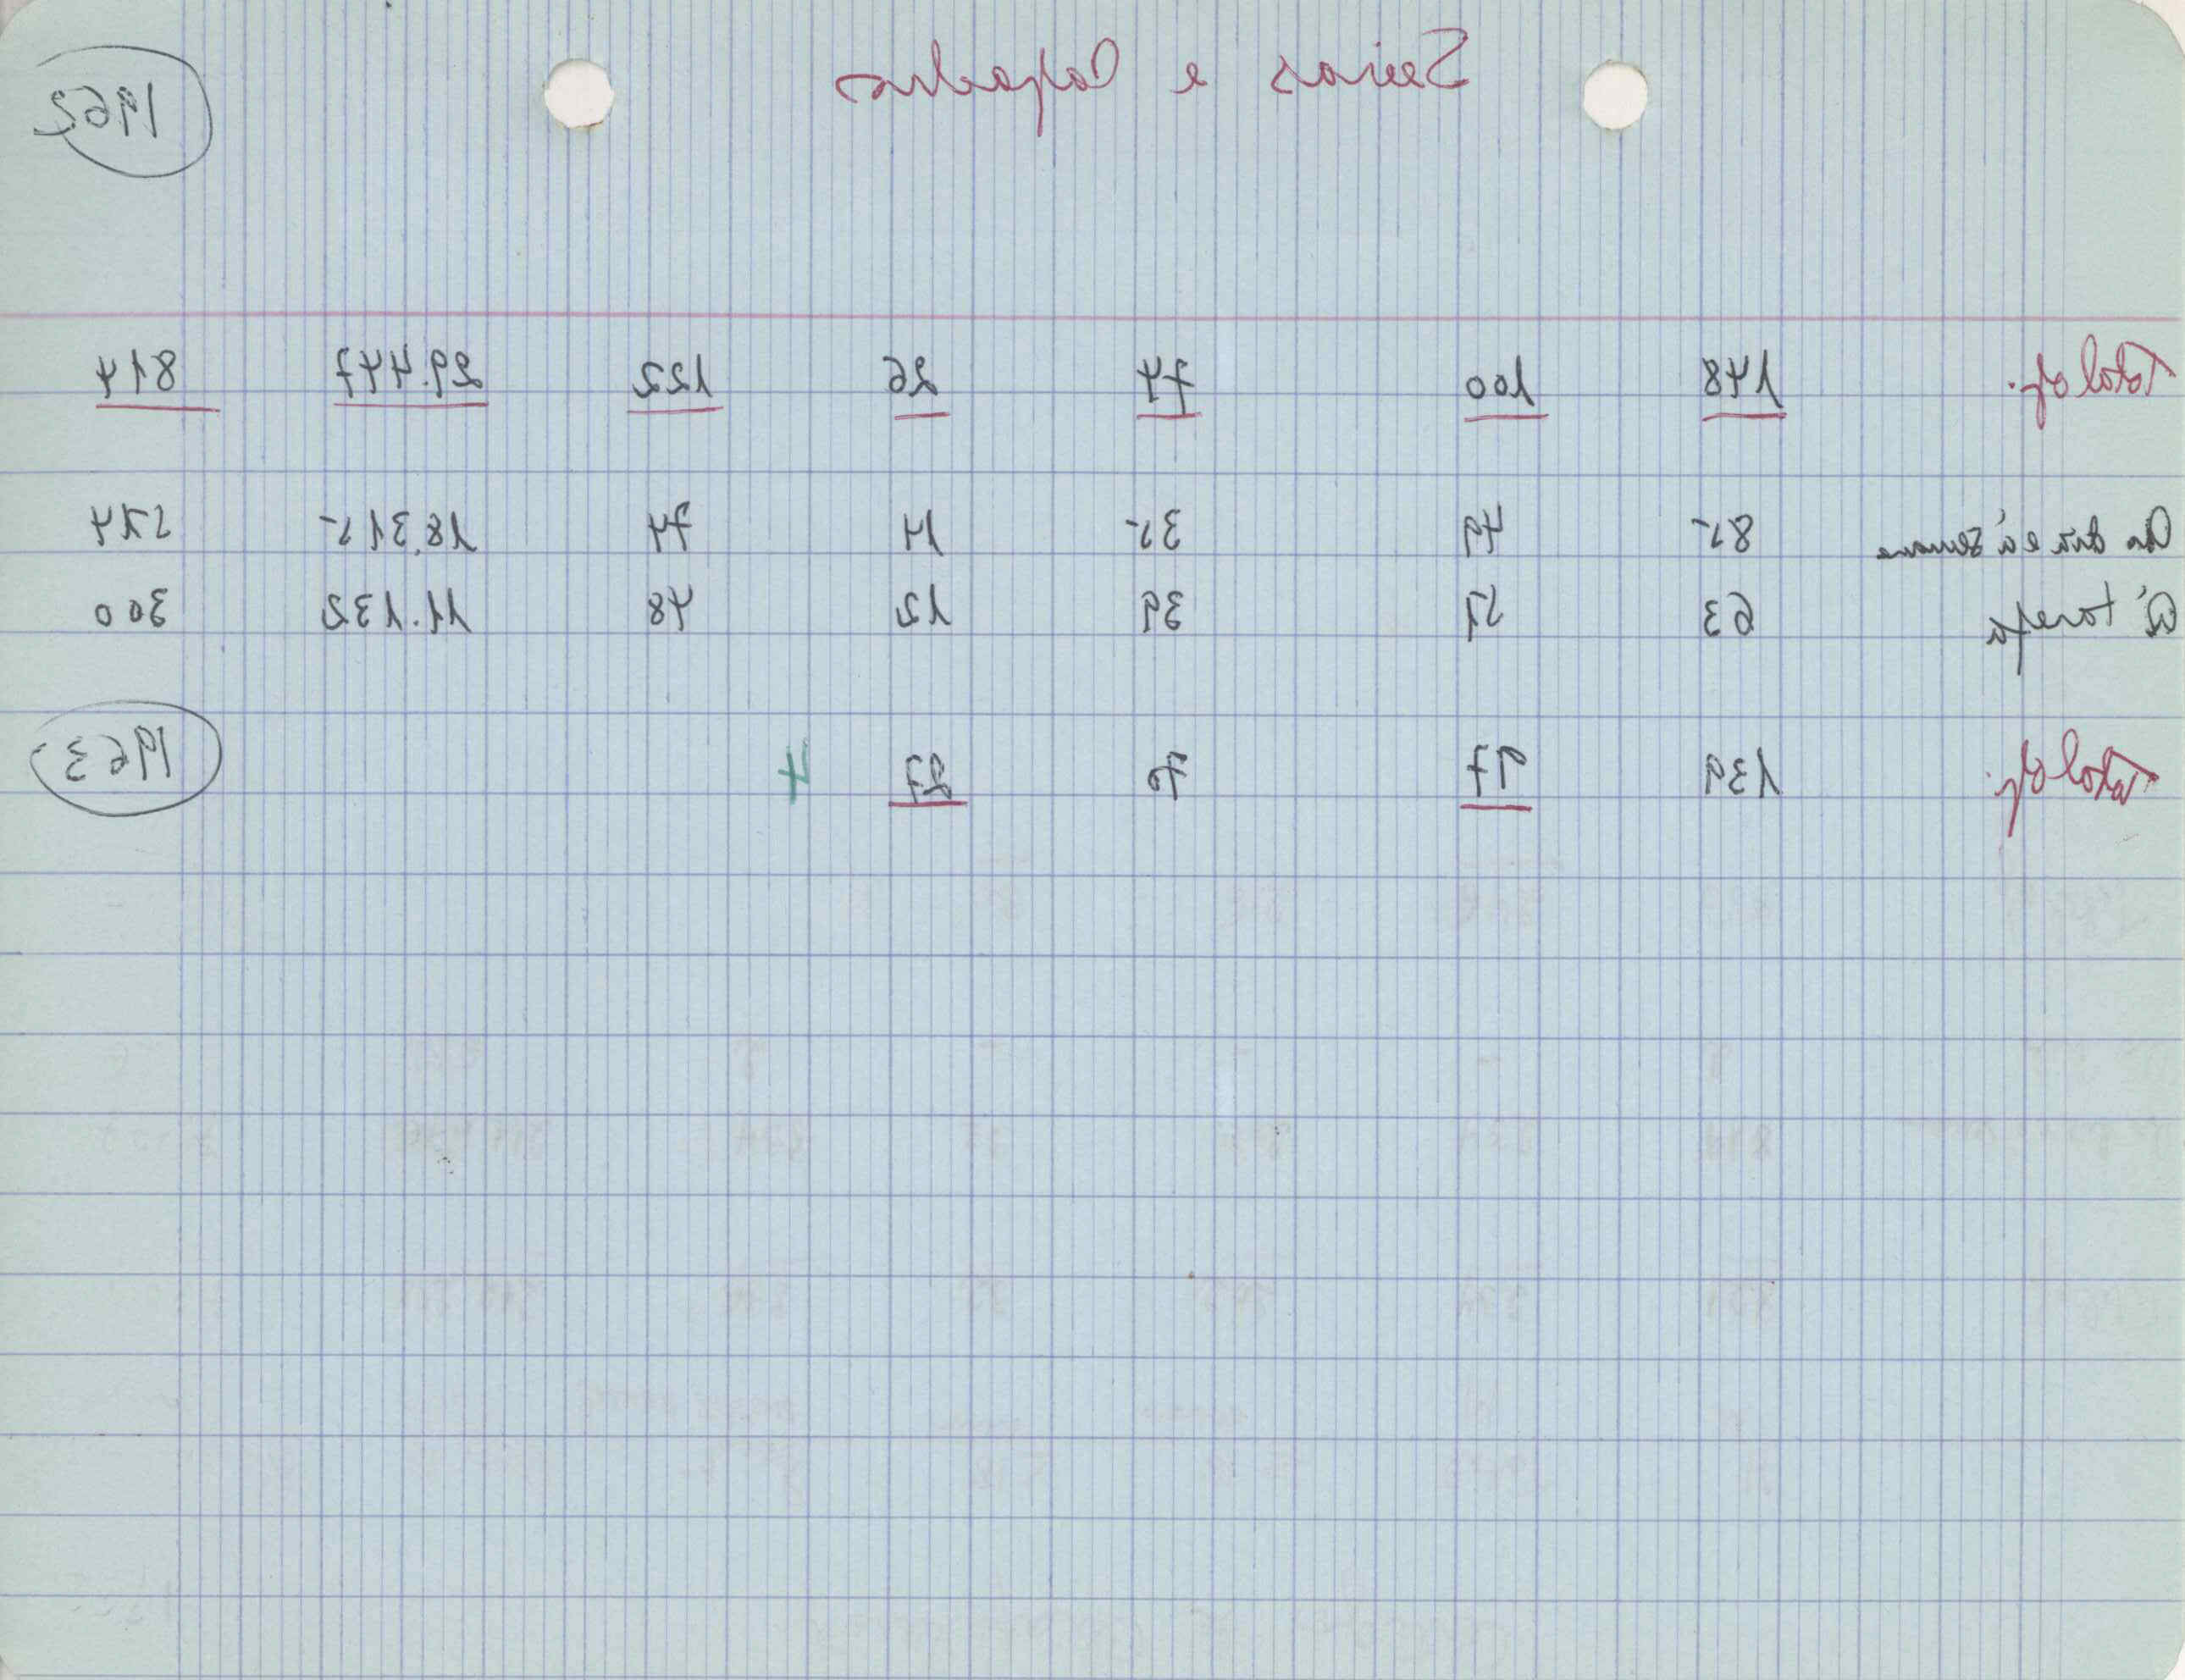 Seiras e Capachos
1962
Total of. 148 100 74 26 122 29.447 814
Ao dia e à semana 85 49 35 14 74 18.315 514
À tarefa 63 51 39 12 48 11.132 300
Total of. 139 97 70 27 4 1963